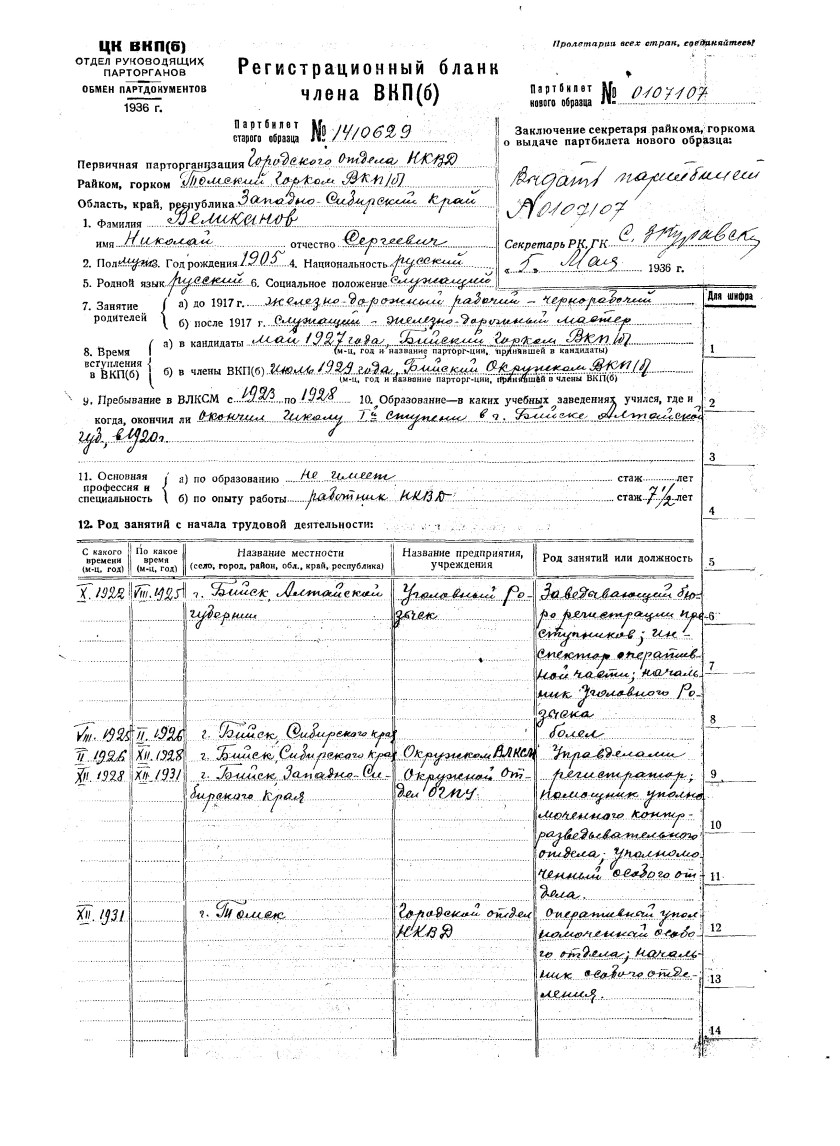 ЦК ВКП(б)
ОТДЕЛ РУКОВОДЯЩИХ
ПАРТОРГАНОВ
ОБМЕН ПАРТДОКУМЕНТОВ
1936 г.
Пролетарии всех стран, соединяйтесь!
Регистрационный бланк
члена ВКП(б)
Партбилет
нового образца № 0107107
Партбилет
старого образца № 1410629
Заключение секретаря райкома, горкома
о выдаче партбилета нового образца:
Выдать партбилет
№ 0107107
Секретарь РК, ГК
„ 5 „ Мая 1936 г.
Первичная парторганизация Городского отдела НКВД
Райком, горком Томский Горком ВКП(б)
Область, край, республика Западно-Сибирский край
1. Фамилия Великанов
имя Николай отчество Сергеевич
2. Пол муж 3. Год рождения 1905 4. Национальность русский
5. Родной язык русский 6. Социальное положение служащий
7. Занятие родителей
а) до 1917 г. железно-дорожный рабочий - чернорабочий
б) после 1917 г. служащий - железно-дорожный мастер
8. Время вступления в ВКП(б)
а) в кандидаты май 1927 года, Бийский Горком ВКП(б)
(м-ц, год и название парторг-ции, принявшей в кандидаты)
б) в члены ВКП(б) июль 1929 года, Бийский Окружком ВКП(б)
(м-ц, год и название парторг-ции, принявшей в члены ВКП(б)
9. Пребывание в ВЛКСМ с 1923 по 1928 10. Образование—в каких учебных заведениях учился, где и
когда, окончил ли окончил школу Iй ступени в г. Бийске Алтайской
губ, в 1920 г.
11. Основная профессия и специальность
а) по образованию не имеет стаж лет
б) по опыту работы работник НКВД стаж 7 1/2 лет
12. Род занятий с начала трудовой деятельности:
Для шифра
1
2
3
4
5
6
7
8
9
10
11
12
13
14
С какого времени (м-ц, год)
По какое время (м-ц, год)
Название местности (село, город, район, обл., край, республика)
Название предприятия, учреждения
Род занятий или должность
X. 1922 VIII. 1925 г. Бийск, Алтайской Уголовный Ро- Заведывающий бю-
губернии зыск ро регистрации пре-
ступников; ин-
спектор оператив-
ной части; началь-
ник Уголовного Ро-
зыска
VIII. 1925 II. 1926 г. Бийск, Сибирского края болел
II. 1926 XII. 1928 г. Бийск, Сибирского края Окружком ВЛКСМ Управделами
XII. 1928 XII. 1931 г. Бийск Западно-Си- Окружной От- регистратор;
бирского края дел ОГПУ. помощник уполно
моченного контр-
разведывательного
отдела; уполномо-
ченный особого от
дела.
XII. 1931 г. Томск Городской отдел оперативный упол
НКВД номоченный особо-
го отдела; началь-
ник особого отде-
ления.